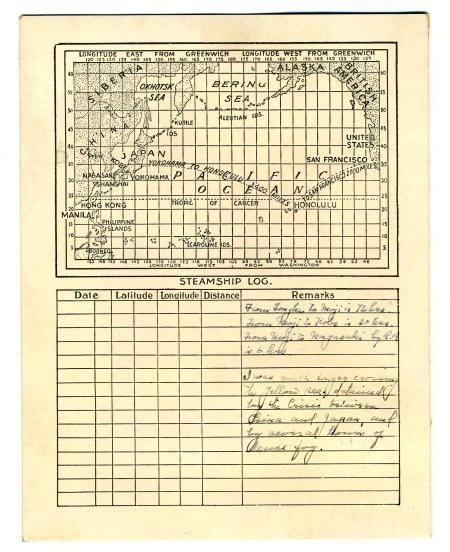 LONGITUDE EAST FROM GREENWICH LONGITUDE WEST FROM GREENWICH
SIBERIA
OKHOTSK
SEA
BERING
SEA
ALASKA
BRITISH
AMERICA
ALEUTIAN IDS.
KURILE
IDS
CHINA
JAPAN
UNITED
STATES
SAN FRANCISCO
YOKOHAMA TO HONOLULU 3400 MILES
TO SAN FRANCISCO 2100 MILES
KOBE
NAGASAKI
YOKOHAMA
SHANGHAI
PACIFIC
OCEAN
HONG KONG
TROPIC OF CANCER
HONOLULU
MANILA
PHILIPPINE
ISLANDS
CAROLINE IDS.
BORNEO
LONGITUDE WEST FROM WASHINGTON
STEAMSHIP LOG.
Date Latitude Longitude Distance Remarks
From to Moji is 72 hrs.
From Moji to Kobe is 20 hrs.
From Moji to Nagasaki by R.R.
is 6 hrs
I was much longer crossing
the Yellow sea, detained
by the Crisis between
China and Japan, and
by several hours of
dense fog.